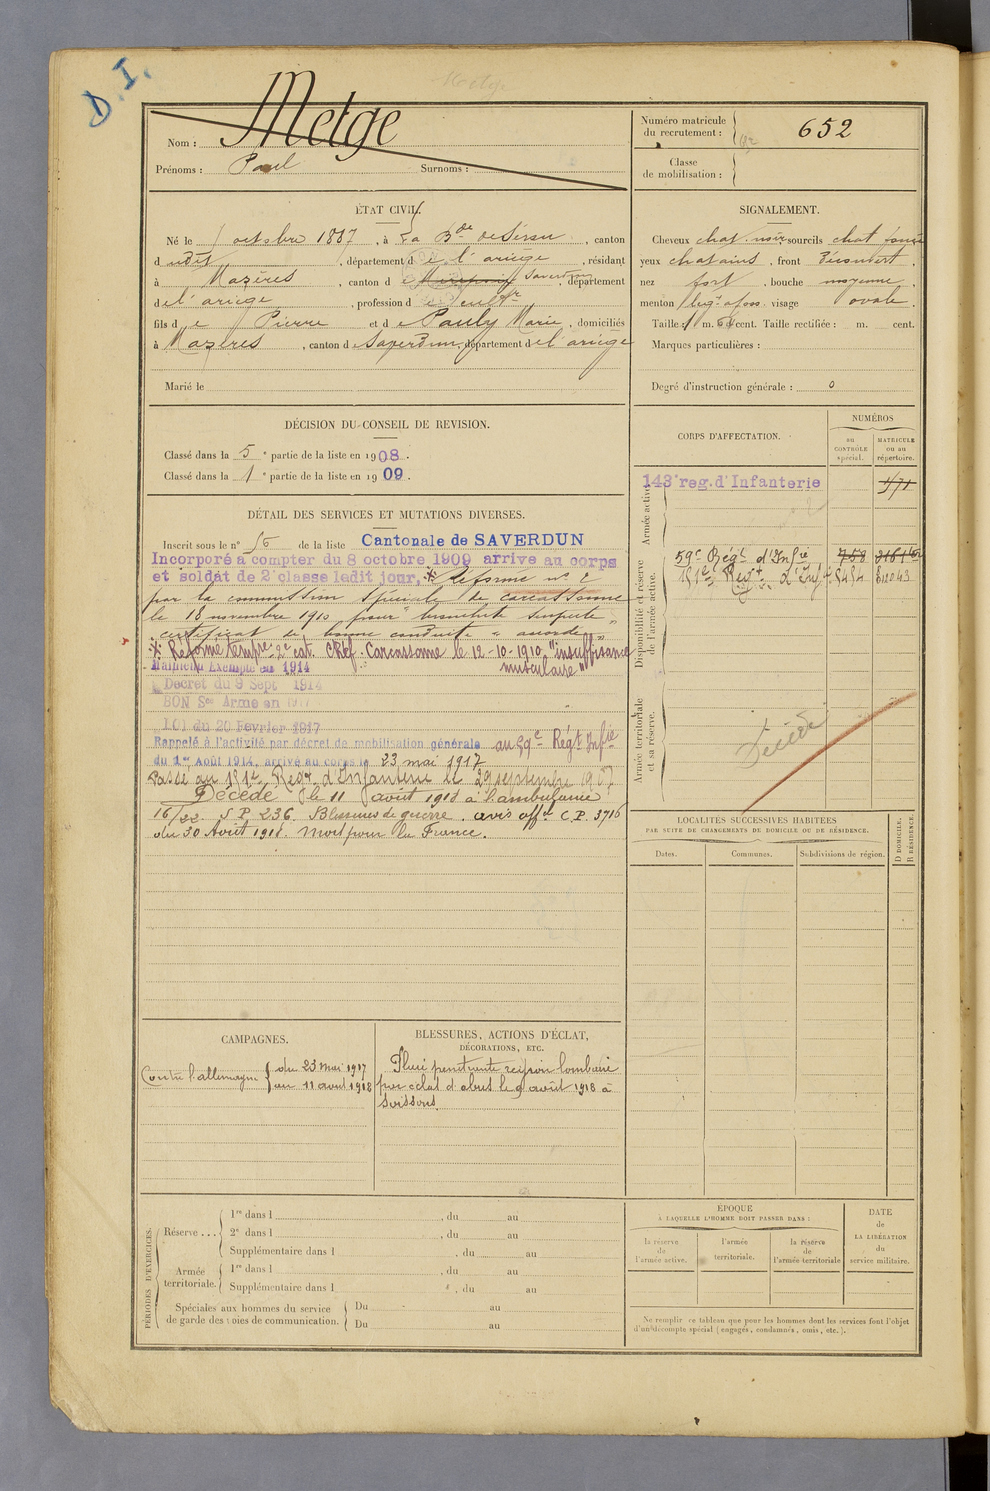 D. I.
Metge
Nom : Metge
Prénoms : Paul Surnoms :
Numéro matricule du recrutement : 652
Classe de mobilisation :
ÉTAT CIVIL.
Né le octobre 1887, à La Bde de Séron, canton
dudit, département de l'ariège, résidant
à Mazères, canton de Saverdun, département
de l'ariège, profession de cultr
fils de Pierre et de Pauly Marie, domiciliés
à Mazères, canton de Saverdun, département de l'ariège
Marié le
SIGNALEMENT.
Cheveux chat. noir sourcils chat foncé
yeux chatains, front découvert,
nez fort, bouche moyenne,
menton visage ovale
Taille : 1 m. cent. Taille rectifiée : m. cent.
Marques particulières :
Degré d'instruction générale : 0
DÉCISION DU CONSEIL DE REVISION.
Classé dans la 5e partie de la liste en 1908.
Classé dans la 1e partie de la liste en 1909.
CORPS D'AFFECTATION.
NUMÉROS
au CONTRÔLE spécial.
MATRICULE ou au répertoire.
Armée active.
143e reg. d'Infanterie
Disponibilité et réserve de l'armée active.
59e Régt d'Infie 758
151e Regt d'Infie
Armée territoriale et sa réserve.
Décédé
DÉTAIL DES SERVICES ET MUTATIONS DIVERSES.
Inscrit sous le n° 56 de la liste Cantonale de SAVERDUN
Incorporé à compter du 8 octobre 1909 arrive au corps
et soldat de 2e classe ledit jour, * Réformé n° 2
par la commission spéciale de carcassonne
le 18 novembre 1910 pour
certificat de bonne conduite "accordé"
* Réformé tempre 2e cat. CRéf. Carcassonne le 12-10-1910 "insuffisance
musculaire"
Maintenu Exempté en 1914
Décret du 9 Sept 1914
BON See Armé en 1917
LOI du 20 Février 1917
Rappelé à l'activité par décret de mobilisation générale au 59e Régt Infie
du 1er Août 1914, arrivé au corps le 23 mai 1917
Passé au 151e Regt d'Infanterie le 29 septembre 1917
Décédé le 11 août 1918 à l'ambulance
16/22 S.P. 236. Blessures de guerre. avis offel C.P. 3716
du 30 Août 1918. Mort pour la France.
LOCALITÉS SUCCESSIVES HABITÉES
PAR SUITE DE CHANGEMENTS DE DOMICILE OU DE RÉSIDENCE.
Dates. Communes. Subdivisions de région.
D DOMICILE.
R RÉSIDENCE.
CAMPAGNES.
Contre l'allemagne du 23 mai 1917
au 11 aout 1918
BLESSURES, ACTIONS D'ÉCLAT,
DÉCORATIONS, ETC.
Plaie pénétrante région lombaire
par éclat d'obus le 9 août 1918 à
Soissons
PÉRIODES D'EXERCICES.
Réserve ...
1re dans l , du au
2e dans l , du au
Supplémentaire dans l , du au
Armée territoriale.
1re dans l , du au
Supplémentaire dans l , du au
Spéciales aux hommes du service
de garde des voies de communication.
Du au
Du au
ÉPOQUE
À LAQUELLE L'HOMME DOIT PASSER DANS :
la réserve de l'armée active.
l'armée territoriale.
la réserve de l'armée territoriale
DATE
de
LA LIBÉRATION
du
service militaire.
Ne remplir ce tableau que pour les hommes dont les services font l'objet
d'un décompte spécial (engagés, condamnés, omis, etc.).